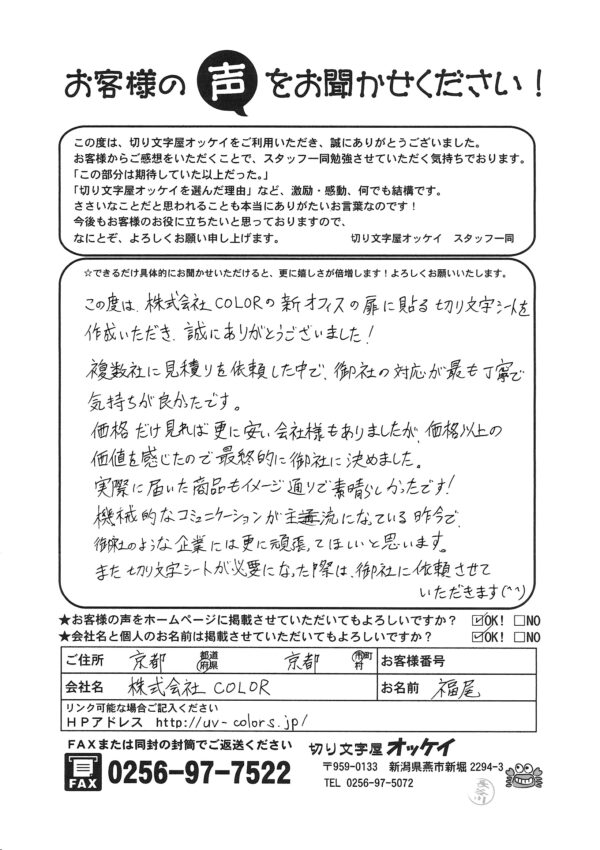 お客様の声をお聞かせください！
この度は、切り文字屋オッケイをご利用いただき、誠にありがとうございました。
お客様からご感想をいただくことで、スタッフ一同勉強させていただく気持ちでおります。
「この部分は期待していた以上だった。」
「切り文字屋オッケイを選んだ理由」など、激励・感動、何でも結構です。
ささいなことだと思われることも本当にありがたいお言葉なのです！
今後もお客様のお役に立ちたいと思っておりますので、
なにとぞ、よろしくお願い申し上げます。 切り文字屋オッケイ スタッフ一同
☆できるだけ具体的にお聞かせいただけると、更に嬉しさが倍増します！よろしくお願いいたします。
この度は、株式会社COLORの新オフィスの扉に貼る切り文字シートを
作成いただき、誠にありがとうございました！
複数社に見積りを依頼した中で、御社の対応が最も丁寧で
気持ちが良かたです。
価格だけ見れば更に安い会社様もありましたが、価格以上の
価値を感じたので最終的に御社に決めました。
実際に届いた商品もイメージ通りで素晴らしかったです！
機械的なコミュニケーションが主流になっている昨今で、
御社のような企業には更に頑張ってほしいと思います。
また切り文字シートが必要になった際は、御社に依頼させて
いただきます(^^)
★お客様の声をホームページに掲載させていただいてもよろしいですか？ ☑OK! □NO
★会社名と個人のお名前は掲載させていただいてもよろしいですか？ ☑OK! □NO
ご住所 京都 都道府県 京都 市町村 お客様番号
会社名 株式会社COLOR お名前 福尾
リンク可能な場合ご記入ください
HPアドレス http://uv-colors.jp/
FAXまたは同封の封筒でご返送ください
切り文字屋オッケイ
FAX 0256-97-7522
〒959-0133 新潟県燕市新堀 2294-3
TEL 0256-97-5072